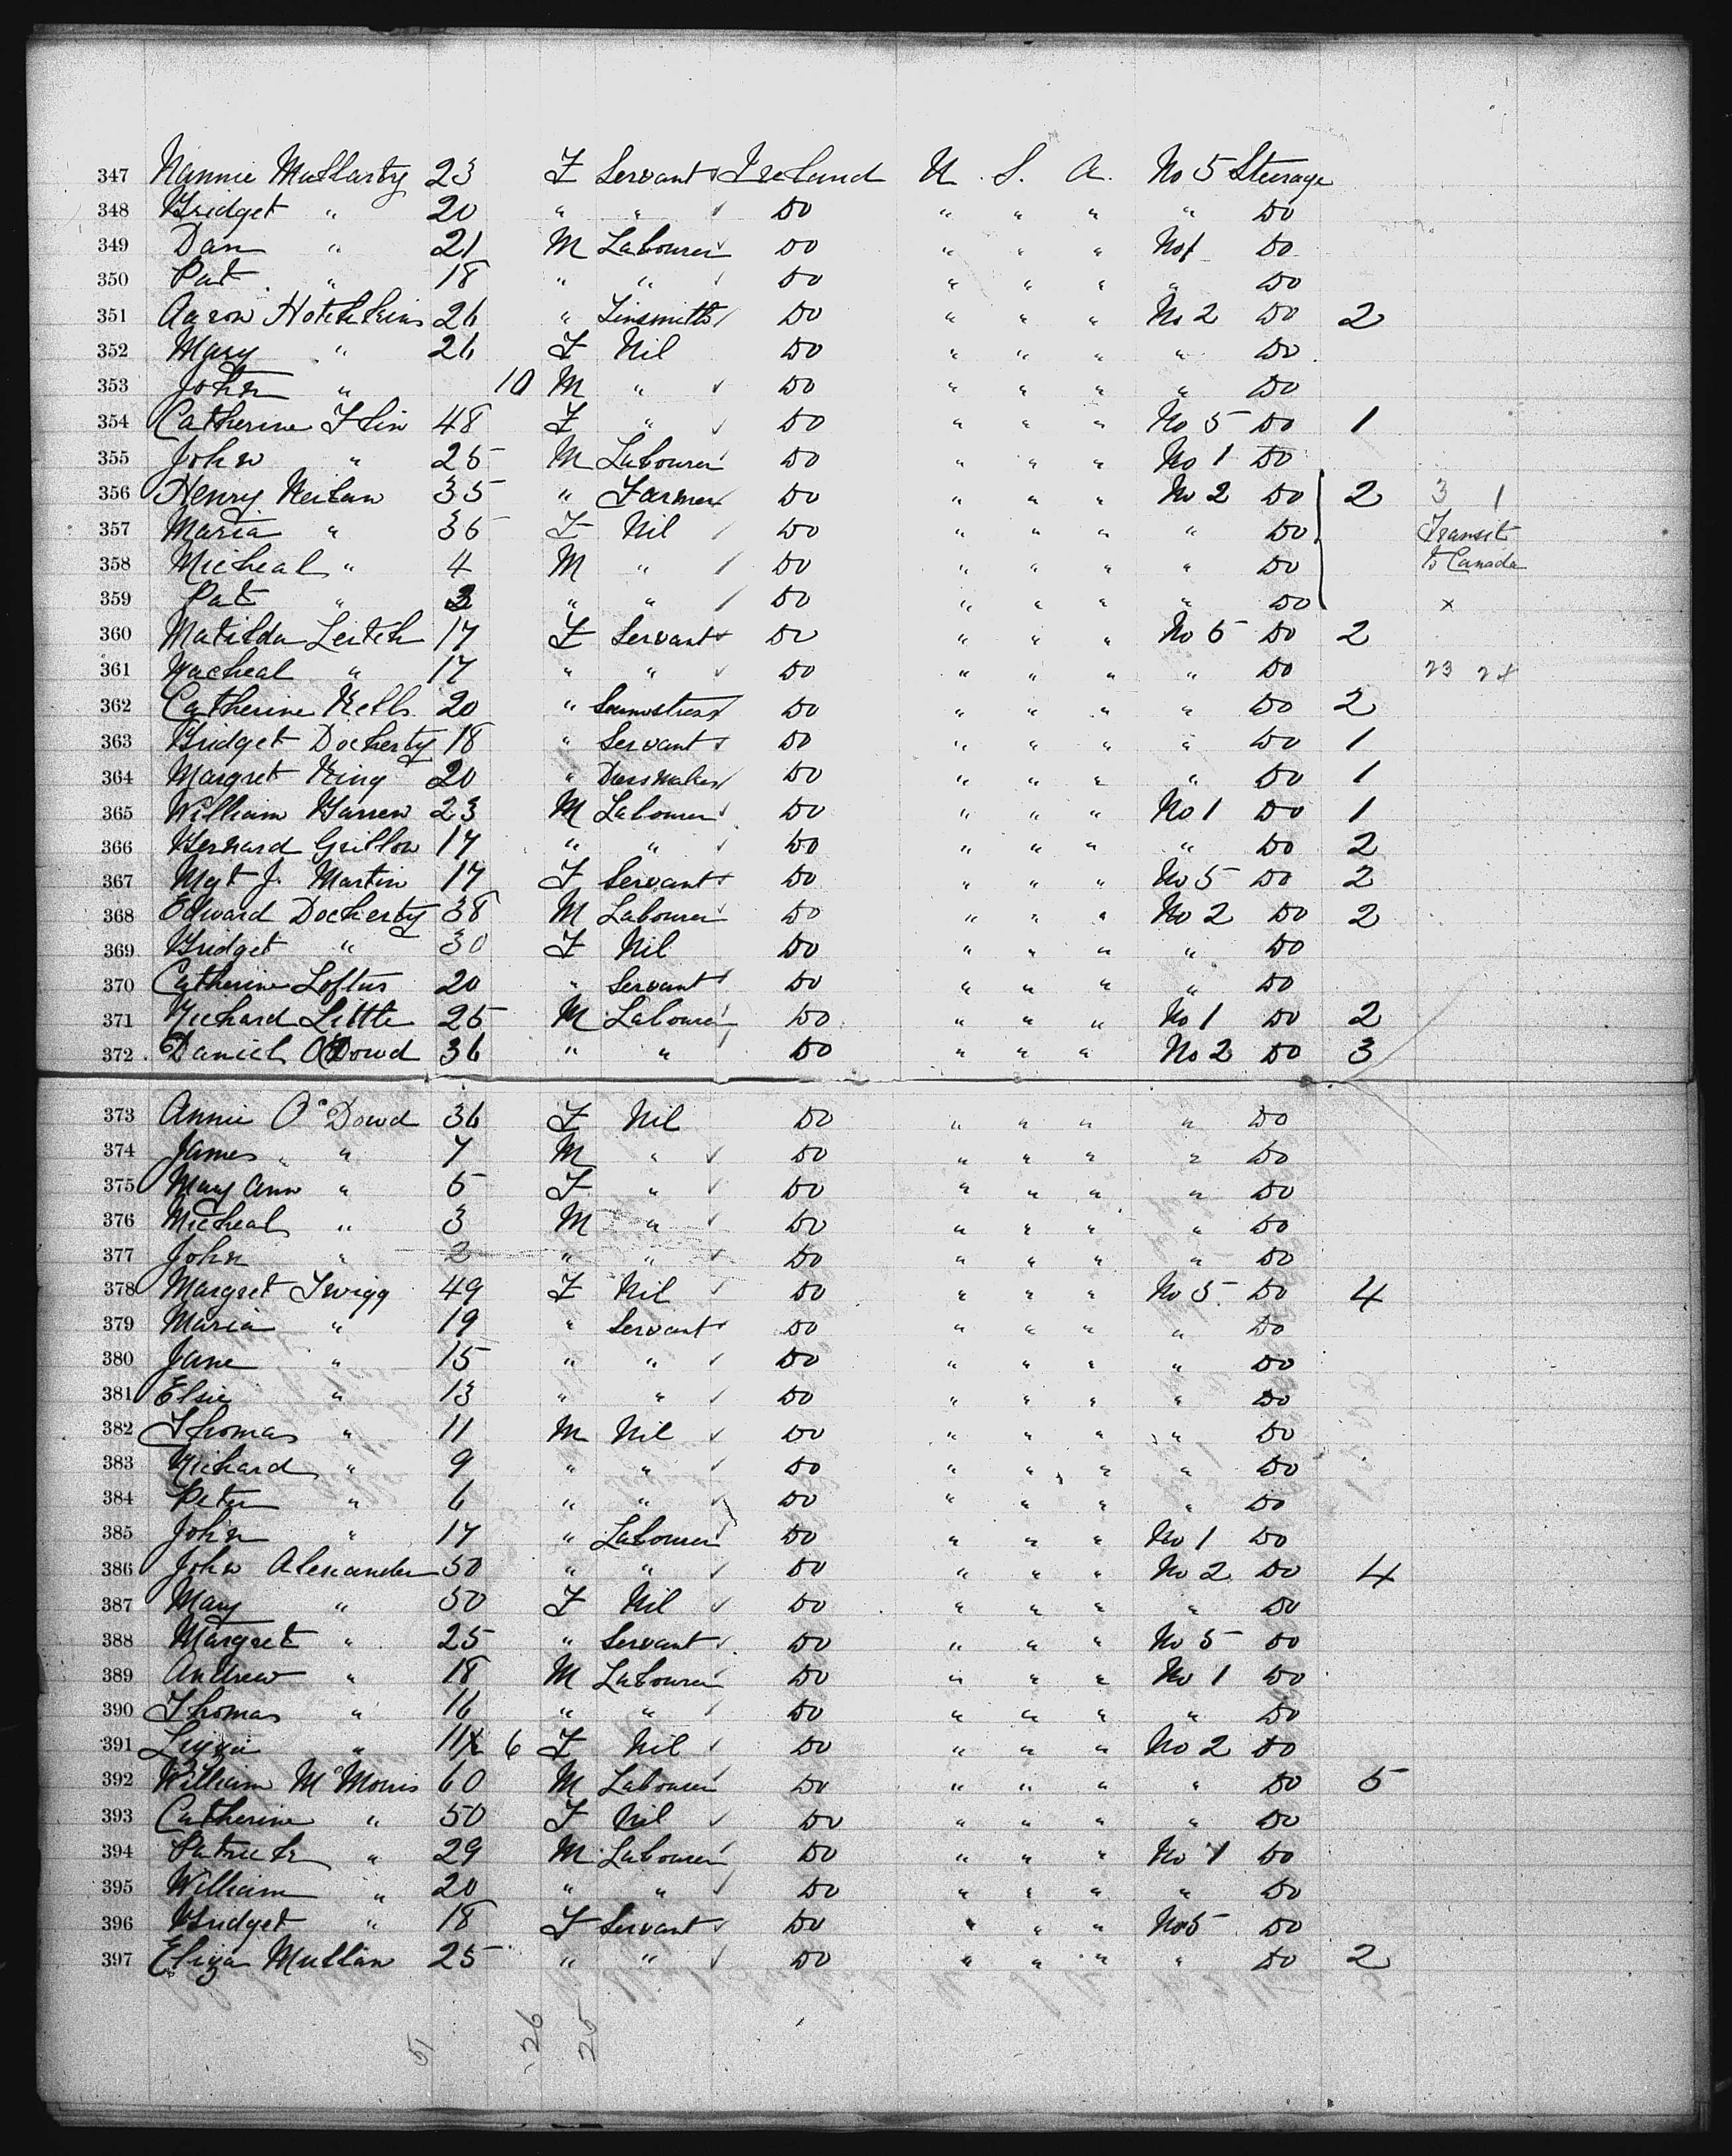 347 Nannie Mullarty 23 F Servant Ireland U. S. A. No 5 Steerage
348 Bridget " 20 " " Do " " " " Do
349 Dan " 21 M Labourer Do " " " No 1 Do
350 Pat " 18 " " Do " " " " Do
351 Aaron Hotchkins 26 " Tinsmith Do " " " No 2 Do 2
352 Mary " 26 F Nil Do " " " " Do
353 John " 10 M " Do " " " " Do
354 Catherine Flin 48 F " Do " " " No 5 Do 1
355 John " 25 M Labourer Do " " " No 1 Do
356 Henry Neilan 35 " Farmer Do " " " No 2 Do 2 3 1
357 Maria " 36 F Nil Do " " " " Do Transit
358 Micheal " 4 M " Do " " " " Do to Canada
359 Pat " " " Do " " " " Do x
360 Matilda Leitch 17 F Servant Do " " " No 5 Do 2
361 Racheal " 17 " " Do " " " " Do 23 24
362 Catherine Kells 20 " Seamstress Do " " " " Do 2
363 Bridget Docherty 18 " Servant Do " " " " Do 1
364 Margret King 20 " Dressmaker Do " " " " Do 1
365 William Barren 23 M Labourer Do " " " No 1 Do 1
366 Bernard Grillow 17 " " Do " " " " Do 2
367 Mgt J. Martin 17 F Servant Do " " " No 5 Do 2
368 Edward Docherty 38 M Labourer Do " " " No 2 Do 2
369 Bridget " 30 F Nil Do " " " " Do
370 Catherine Loftus 20 " Servant Do " " " " Do
371 Richard Little 25 M Labourer Do " " " No 1 Do 2
372 Daniel O'Dowd 36 " " Do " " " No 2 Do 3
373 Annie O'Dowd 36 F Nil Do " " " " Do
374 James " 7 M " Do " " " " Do
375 Mary Ann " 5 F " Do " " " " Do
376 Micheal " 3 M " Do " " " " Do
377 John " 2 " " Do " " " " Do
378 Margret Twigg 49 F Nil Do " " " No 5 Do 4
379 Maria " 19 " Servant Do " " " " Do
380 Jane " 15 " " Do " " " " Do
381 Elsie " 13 " " Do " " " " Do
382 Thomas " 11 M Nil Do " " " " Do
383 Richard " 9 " " Do " " " " Do
384 Peter " 6 " " Do " " " " Do
385 John " 17 " Labourer Do " " " No 1 Do
386 John Alexander 50 " " Do " " " No 2 Do 4
387 Mary " 50 F Nil Do " " " " Do
388 Margret " 25 " Servant Do " " " No 5 Do
389 Andrew " 18 M Labourer Do " " " No 1 Do
390 Thomas " 16 " " Do " " " " Do
391 Lizzie " 11 6 F Nil Do " " " No 2 Do
392 William McMorris 60 M Labourer Do " " " " Do 5
393 Catherine " 50 F Nil Do " " " " Do
394 Patrick " 29 M Labourer Do " " " No 1 Do
395 William " 20 " " Do " " " " Do
396 Bridget " 18 F Servant Do " " " No 5 Do
397 Eliza Mullan 25 " " Do " " " " Do 2
51 26 25